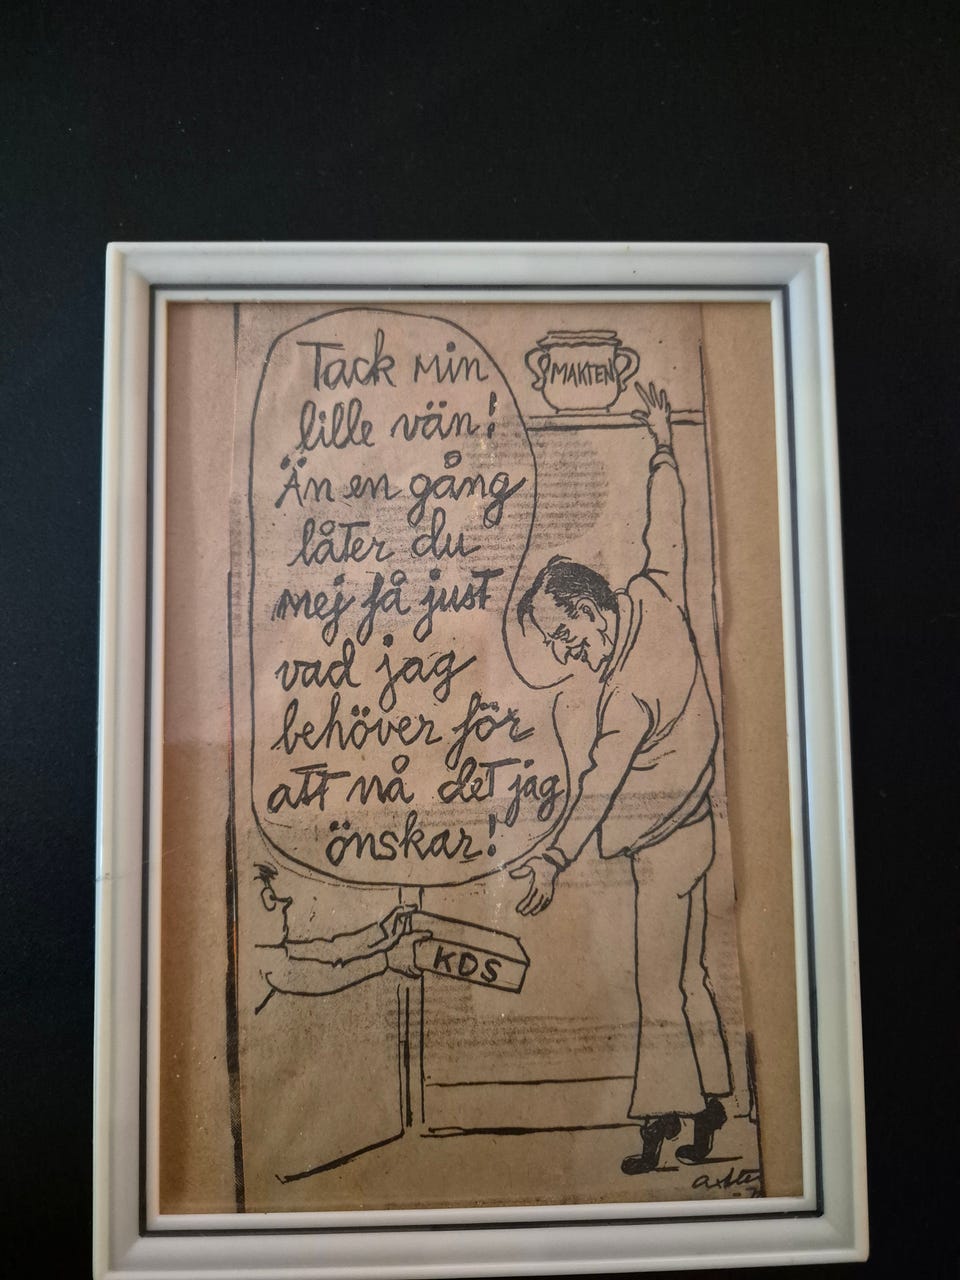 Tack min
lille vän!
Än en gång
låter du
mej få just
vad jag
behöver för
att nå det jag
önskar!
MAKTEN
KDS